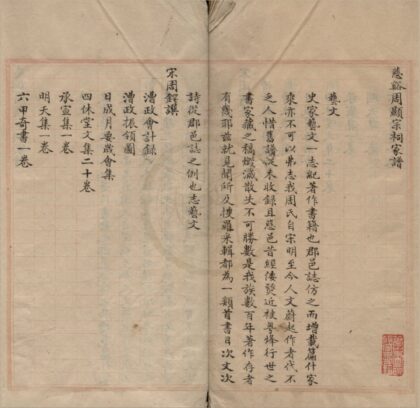 慈谿周顯宗祠家譜
藝文
史家藝文一志紀著作書籍也郡邑誌仿之而增載篇什家
乘亦不可以弗志我周氏自宋明至今人文蔚起作者代不
乏人惜舊譜從未收録且慈邑昔經倭燹近被粤烽行世之
書家藏之稿燬滅散失不可勝數是我族數百年著作存者
有幾耶茲就見聞所及搜羅采輯都為一類首書目次文次
詩從郡邑誌之例也志藝文
宋周鍔譔
漕政會計録
漕政振領圖
日成月要歲會集
四休堂文集二十卷
承宣集一卷
明天集一卷
六甲奇書一卷